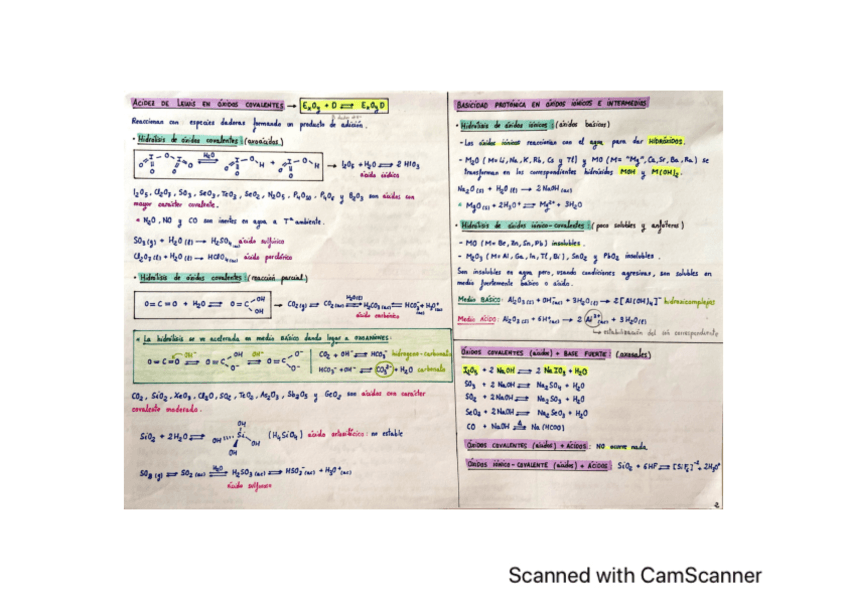 ACIDEZ DE LEWIS EN ÓXIDOS COVALENTES → ExOy + D ⇌ ExOyD
Reaccionan con especies dadoras formando un producto de adición.
• Hidrólisis de óxidos covalentes (oxoácidos)
H₂O
→ I₂O₅ + H₂O ⇌ 2 HIO₃
ácido iódico
I₂O₅, Cl₂O₇, SO₃, SeO₃, TeO₃, SeO₂, N₂O₅, P₄O₁₀, P₄O₆ y B₂O₃ son óxidos con
mayor carácter covalente.
* N₂O, NO y CO son inertes en agua a Tª ambiente.
SO₃(g) + H₂O(l) → H₂SO₄ ácido sulfúrico
Cl₂O₇(l) + H₂O(l) → HClO₄(ac) ácido perclórico
• Hidrólisis de óxidos covalentes (reacción parcial)
O=C=O + H₂O ⇌ O=C OH OH → CO₂(g) ⇌ CO₂(ac) ⇌ H₂CO₃(ac) ⇌ HCO₃⁻(ac) + H₃O⁺(ac)
ácido carbónico
* La hidrólisis se ve acelerada en medio básico dando lugar a OXOANIONES:
CO₂ + OH⁻ ⇌ HCO₃⁻ hidrogeno-carbonato
HCO₃⁻ + OH⁻ ⇌ CO₃²⁻ + H₂O carbonato
CO₂, SiO₂, XeO₃, Cl₂O, SO₂, TeO₂, As₂O₃, Sb₂O₃ y GeO₂ son óxidos con carácter
covalente moderado.
SiO₂ + 2H₂O ⇌ OH Si OH OH OH (H₄SiO₄) ácido ortosilícico: no estable
SO₂(g) ⇌ SO₂(ac) ⇌ H₂SO₃(ac) ⇌ HSO₃⁻(ac) + H₃O⁺(ac)
ácido sulfuroso
BASICIDAD PROTÓNICA EN ÓXIDOS IÓNICOS E INTERMEDIOS
• Hidrólisis de óxidos iónicos (óxidos básicos)
- Los óxidos iónicos reaccionan con el agua para dar HIDRÓXIDOS.
- M₂O (M = Li, Na, K, Rb, Cs y Tl) y MO (M = "Mg", Ca, Sr, Ba, Ra) se
transforman en los correspondientes hidróxidos MOH y M(OH)₂.
Na₂O(s) + H₂O(l) → 2 NaOH(ac)
* MgO(s) + 2H₃O⁺ ⇌ Mg²⁺ + 3H₂O
• Hidrólisis de óxidos iónico-covalentes (poco solubles y anfóteros)
- MO (M = Be, Zn, Sn, Pb) insolubles.
- M₂O₃ (M = Al, Ga, In, Tl, Bi), SnO₂ y PbO₂ insolubles.
Son insolubles en agua pero, usando condiciones agresivas, son solubles en
medio fuertemente básico o ácido.
Medio BÁSICO: Al₂O₃(s) + OH⁻(ac) + 3H₂O(l) → 2[Al(OH)₄]⁻ hidroxicomplejos
Medio ÁCIDO: Al₂O₃(s) + 6H⁺(ac) → 2 Al³⁺(ac) + 3H₂O(l)
↳ estabilización del ión correspondiente
ÓXIDOS COVALENTES (ácidos) + BASE FUERTE (oxosales)
I₂O₅ + 2 NaOH ⇌ 2 NaIO₃ + H₂O
SO₃ + 2 NaOH ⇌ Na₂SO₄ + H₂O
SO₂ + 2NaOH ⇌ Na₂SO₃ + H₂O
SeO₂ + 2 NaOH ⇌ Na₂SeO₃ + H₂O
CO + NaOH ⇌ Na(HCOO)
ÓXIDOS COVALENTES (ácidos) + ÁCIDOS: NO ocurre nada.
ÓXIDOS IÓNICO-COVALENTE (ácidos) + ÁCIDOS SiO₂ + 6HF ⇌ [SiF₆]⁻² + 2H₃O⁺
2
Scanned with CamScanner